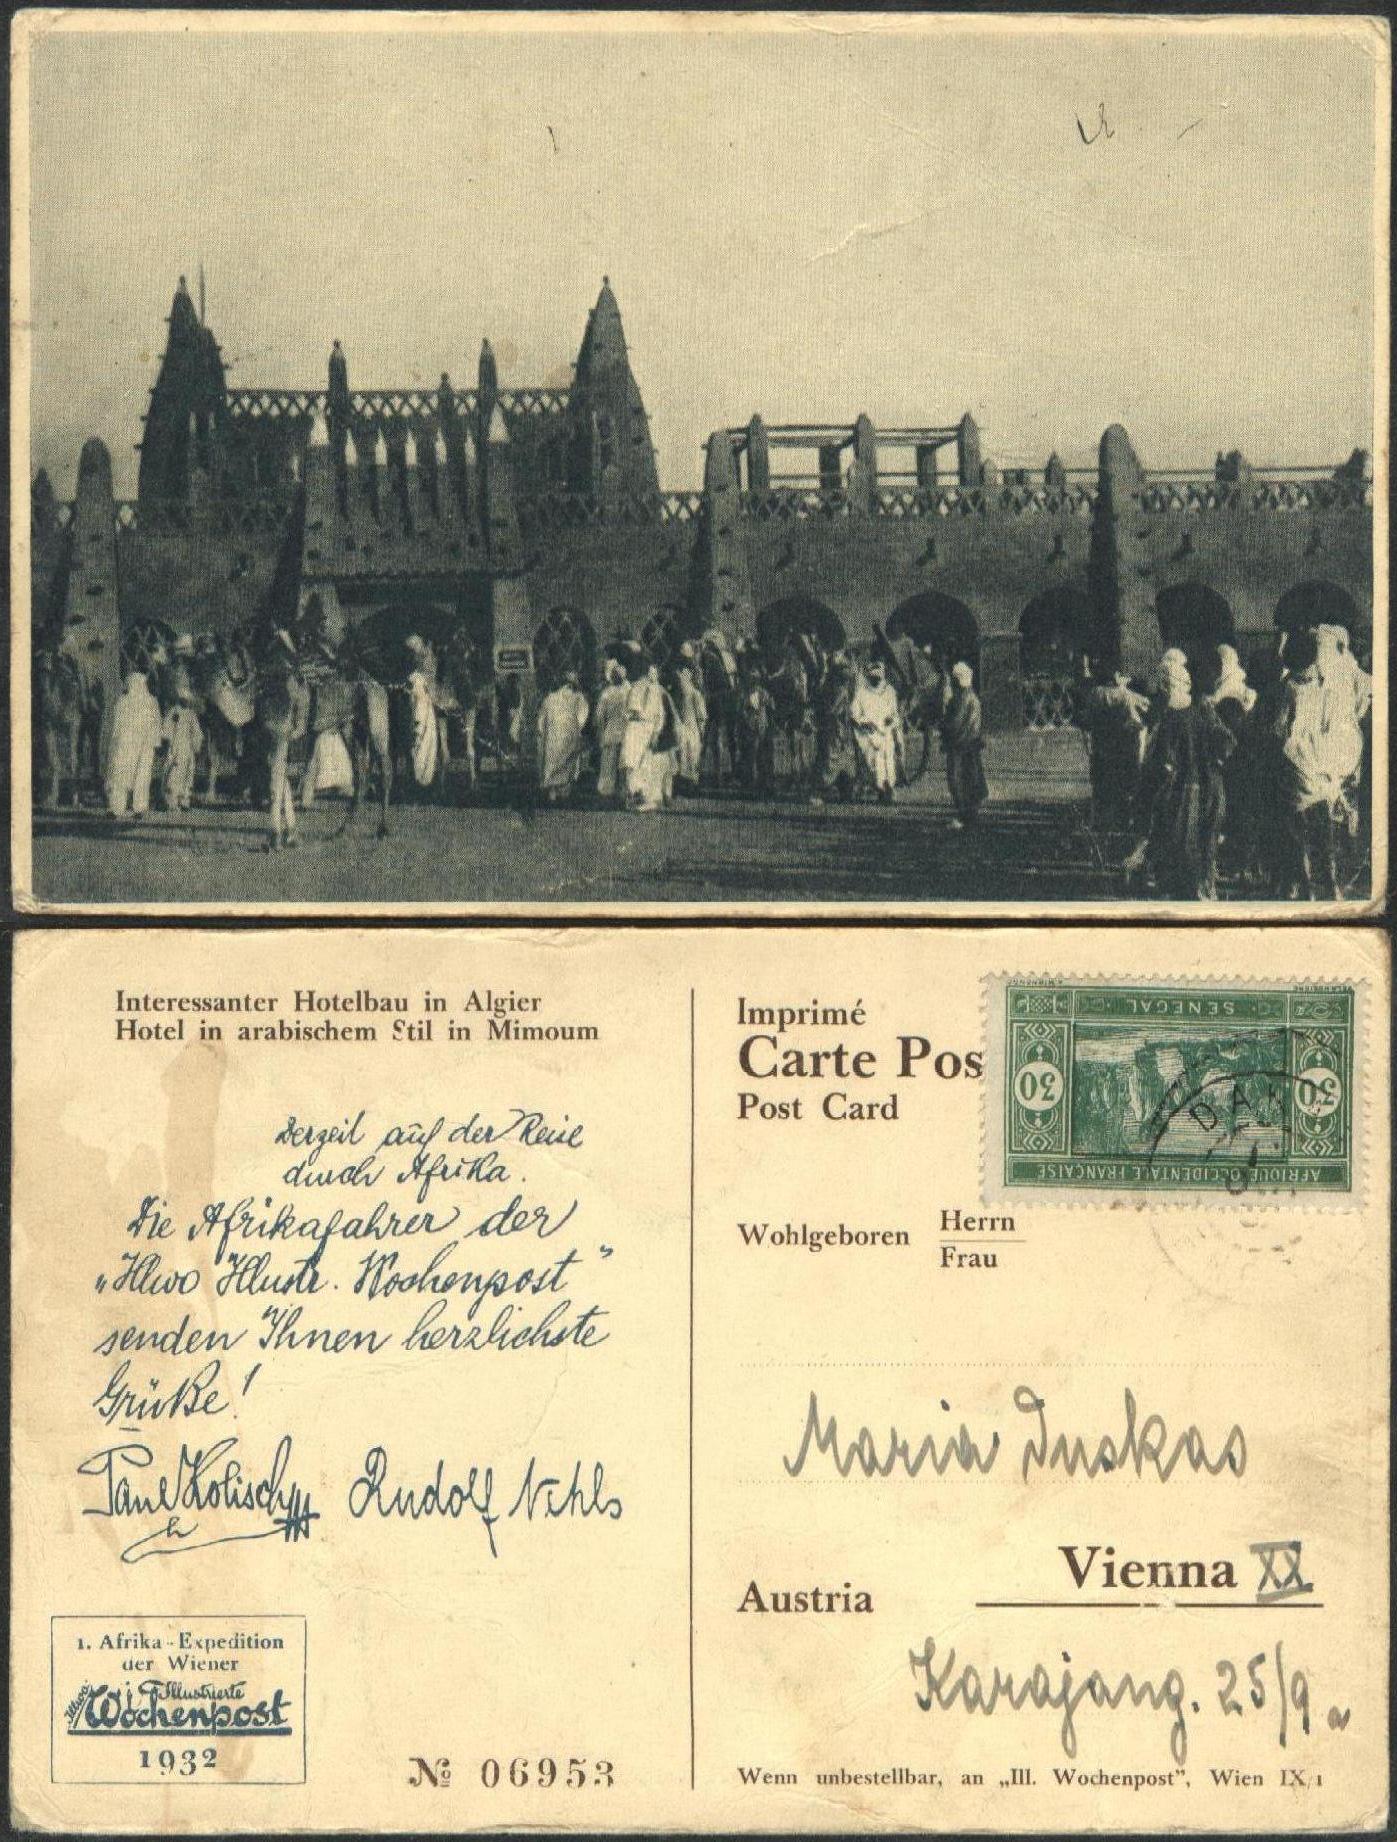 Interessanter Hotelbau in Algier
Hotel in arabischem Stil in Mimoum
Derzeit auf der Reise
durch Afrika.
Die Afrikafahrer der
„Illwo Illustr. Wochenpost”
senden Ihnen herzlichste
Grüße!
Paul Kolisch Rudolf Nehls
1. Afrika-Expedition
der Wiener
Illwo Illustrierte
Wochenpost
1932
№ 06953
Imprimé
Carte Pos
Post Card
SENEGAL
30 30
AFRIQUE OCCIDENTALE FRANÇAISE
DAK
Wohlgeboren Herrn
Frau
Maria Duskas
Vienna XX
Austria
Karajang. 25/9 a
Wenn unbestellbar, an „Ill. Wochenpost”, Wien IX/1